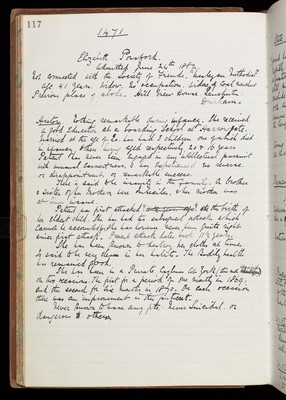 117
1471
Elizabeth
Admitted June 24th
Not connected with the Society of Friends. Wesleyan Methodist.
Age 41 years. Widow. No occupation. Widow of Coal
Previous place of abode. Hill View House,
Durham.
History. Nothing remarkable during infancy. She received
a good Education at a boarding School at Harrogate.
Married at the age of 20. Has had 3 children one of which died
in infancy, others living aged respectively 20 & 16 years
Patient has never been engaged in any intellectual pursuit
with unusual earnestness, & has experienced no reverse
or disappointment, or remarkable success.
There is said to be insanity in the family. A brother
& sister of her Mother were Imbeciles, & her Mother was
at times insane.
Patient was first attacked after the birth of
her eldest child. She has had 4 subsequent attacks which
cannot be accounted for. She has however never been quite right
since first attack. Present attack dates back
She has been known to destroy her clothes at times
is said to be very clean in her habits. The Bodily health
has remained good.
She has been in a Private Asylum at York,
on two occasions. The first for a period of one month in 1869.
and the second for six months in 1870. On each occasion
there was an improvement in the patient.
Never known to have any fits. Never Suicidal or
dangerous to others.